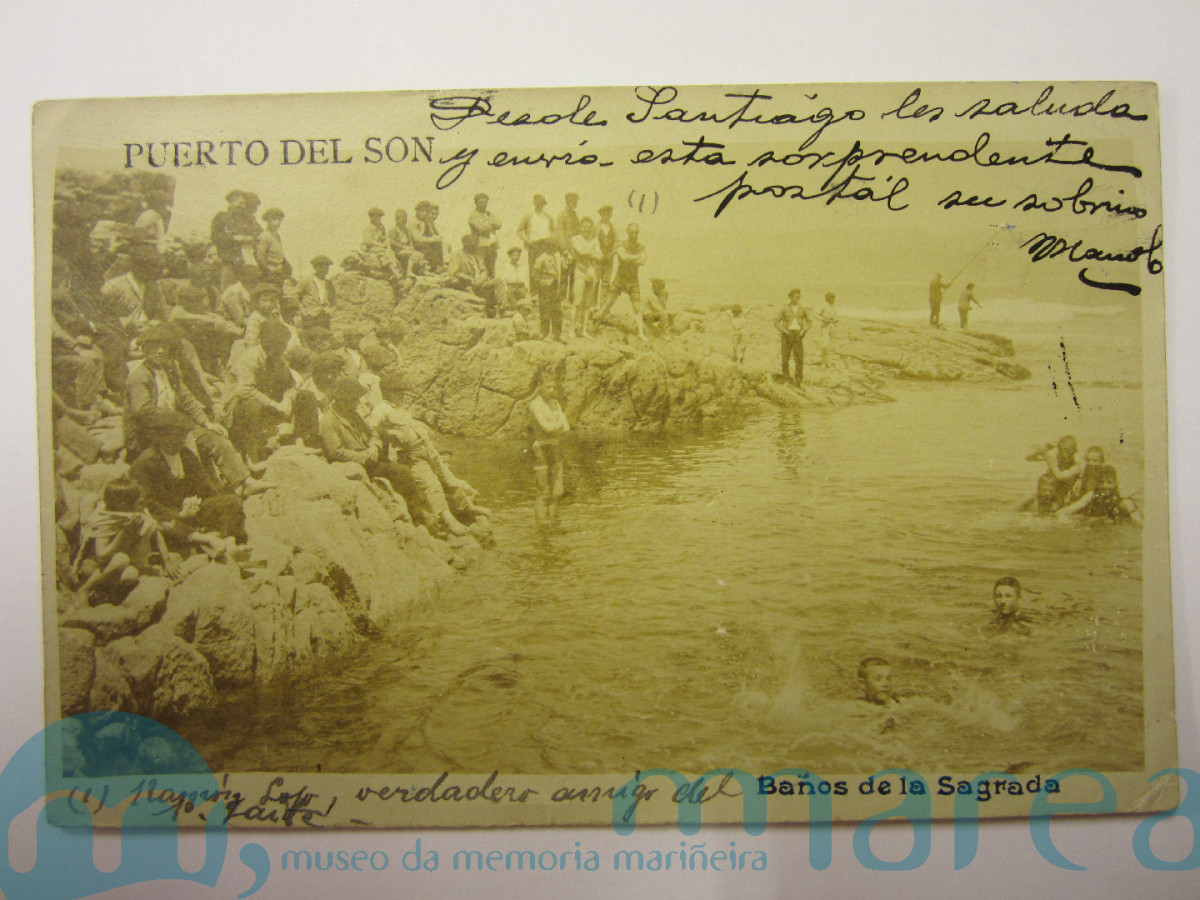 PUERTO DEL SON
Desde Santiágo les saluda
y envia esta sorprendente
postál su sobrino
Manolo
(1)
(1) Ramón, verdadero amigo del
Baños de la Sagrada
marea
museo da memoria mariñeira